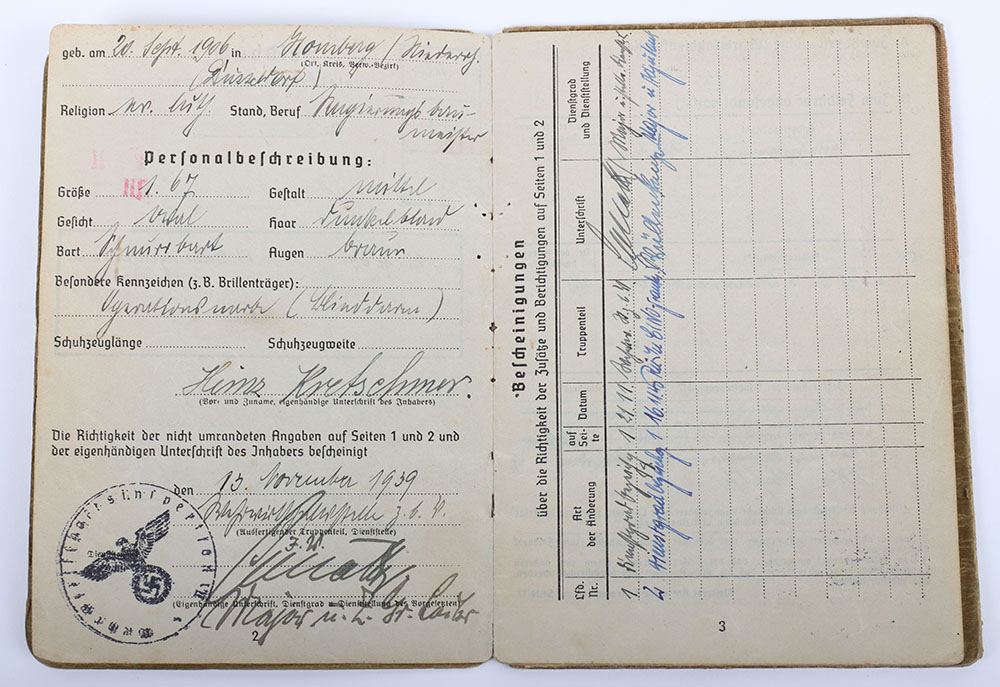 geb. am 20. Sept. 1906 in Homberg / Niederrh.
(Ort, Kreis, Verw.-Bezirk)
(Düsseldorf)
Religion ev. luth. Stand, Beruf Regierungsbau-
meister
Personalbeschreibung:
Größe 1.67 Gestalt mittel
Gesicht oval Haar dunkelblond
Bart Schnurrbart Augen braun
Besondere Kennzeichen (z. B. Brillenträger):
Operationsnarbe (Blinddarm)
Schuhzeuglänge Schuhzeugweite
Heinz Kretschmer
(Vor- und Zuname, eigenhändige Unterschrift des Inhabers)
Die Richtigkeit der nicht umrandeten Angaben auf Seiten 1 und 2 und
der eigenhändigen Unterschrift des Inhabers bescheinigt
den 13. November 1939
z. b. V.
(Ausfertigender Truppenteil, Dienststelle)
(Eigenhändige Unterschrift, Dienstgrad u. Dienststellung des Vorgesetzten)
Major u.
2
Bescheinigungen
über die Richtigkeit der Zusätze und Berichtigungen auf Seiten 1 und 2
Lfd. Nr. Art der Änderung auf Seite Datum Truppenteil Unterschrift Dienstgrad und Dienststellung
1 1
2 1 Major u.
3